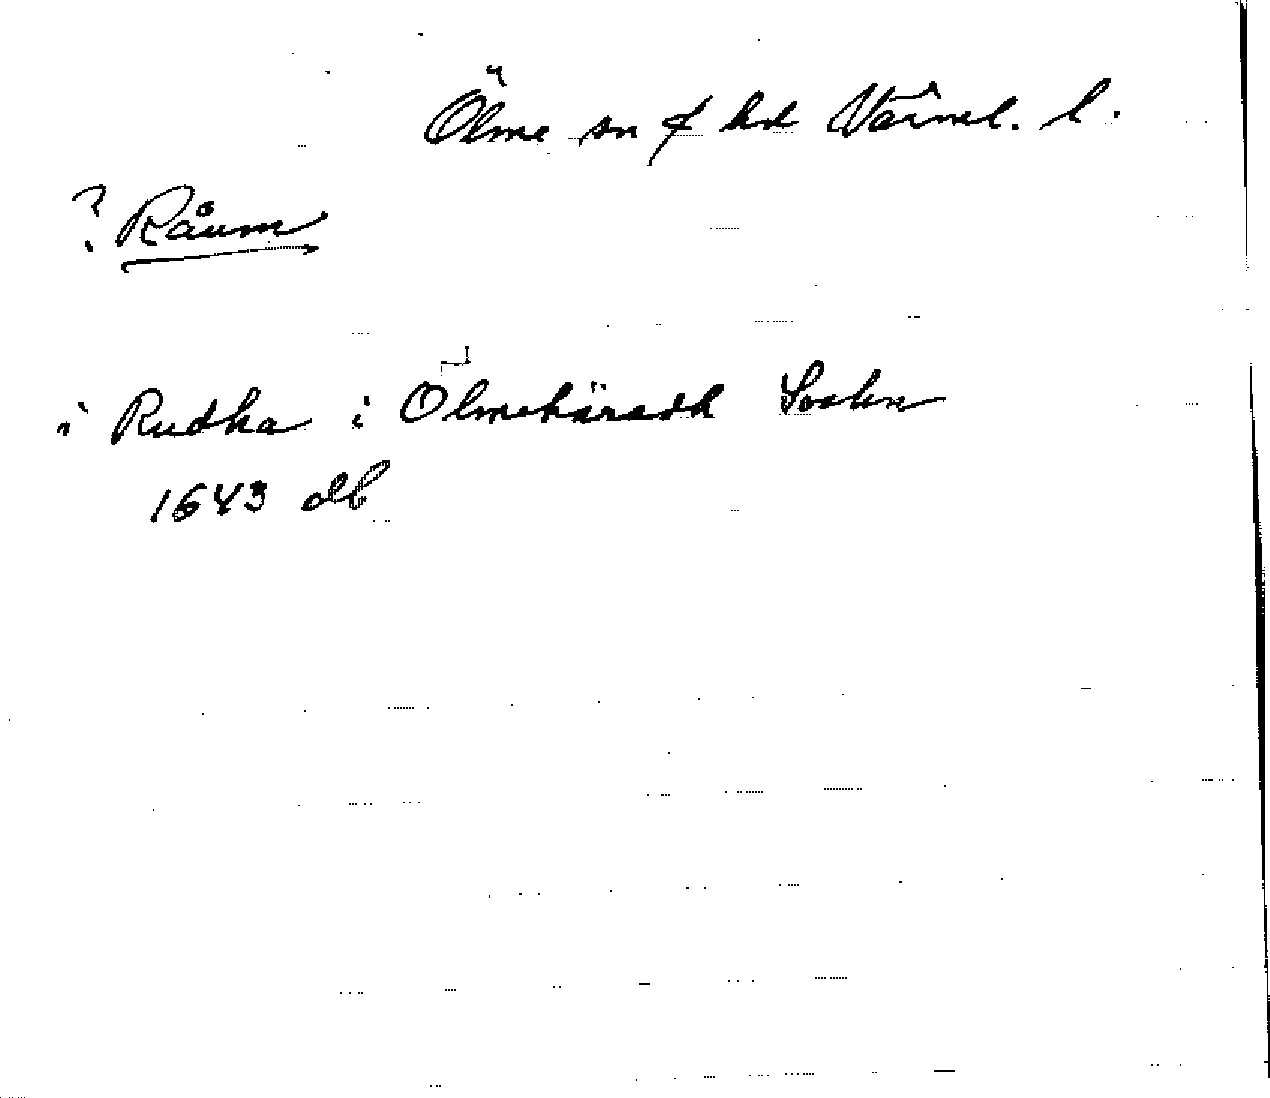 Ölme sn ⚬ hd Värml. l.
? Råum
i Rudha i Ölmehäradh Sochn
1643 db